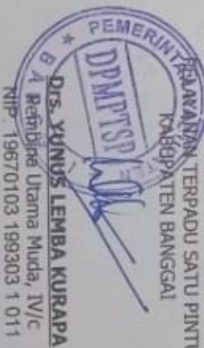 TERPADU SATU PINTU
KABUPATEN BANGGAI
PEMERINT
DPMPTSP
Drs. YUNUS LEMBA KURAPA
Pembina Utama Muda, IV/c
NIP. 19670103 199303 1 011